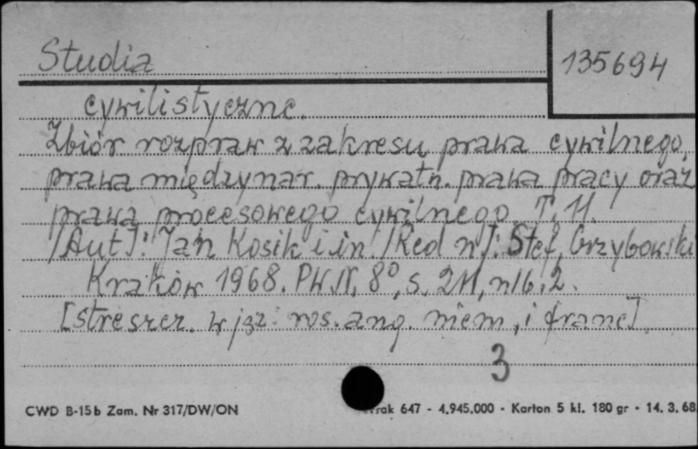 Studia
135694
cywilistyczne.
Zbiór rozpraw z zakresu prawa cywilnego,
prawa międzynar. prywatn. prawa pracy oraz
prawa procesowego cywilnego. T. 11.
/Aut/: Jan Kosik i in. /Red n/: Stef. Grzybowski
Kraków 1968. PWN, 8°, s. 211, nlb. 2.
[streszcz. w jęz: ros. ang. niem, i franc]
3
CWD B-15b Zam. Nr 317/DW/ON
rak 647 - 4.945.000 - Karton 5 kl. 180 gr - 14. 3. 68